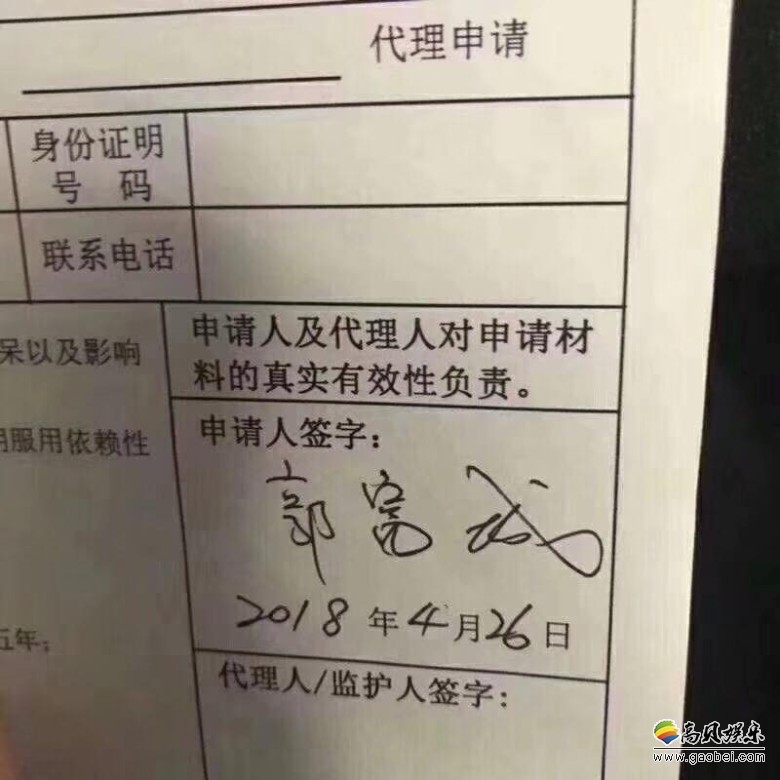 代理申请
身份证明
号 码
联系电话
申请人及代理人对申请材
料的真实有效性负责。
呆以及影响
用服用依赖性
五年;
申请人签字:
郭富城
2018年4月26日
代理人/监护人签字:
高贝娱乐
www.gaobei.com